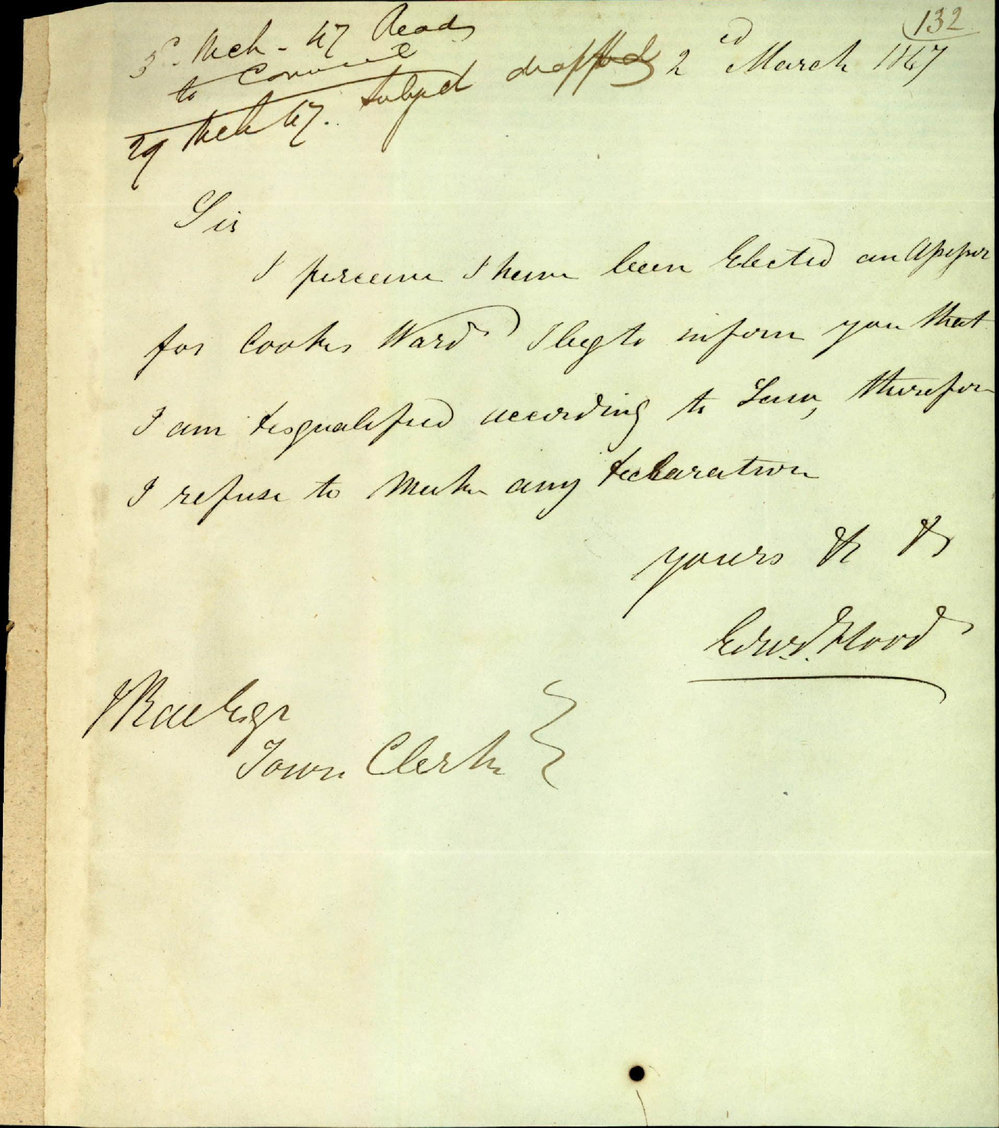 132
3d. Mch - 47 Read
to Council
29 Mch 47. Subject dropped
2d March 1847
Sir
I perceive I have been Elected an Assessor
for Cooks Ward I beg to inform you that
I am disqualified according to Law, therefore
I refuse to make any declaration
yours &c &c
Edwd. Flood
J Rae Esqr
Town Clerk